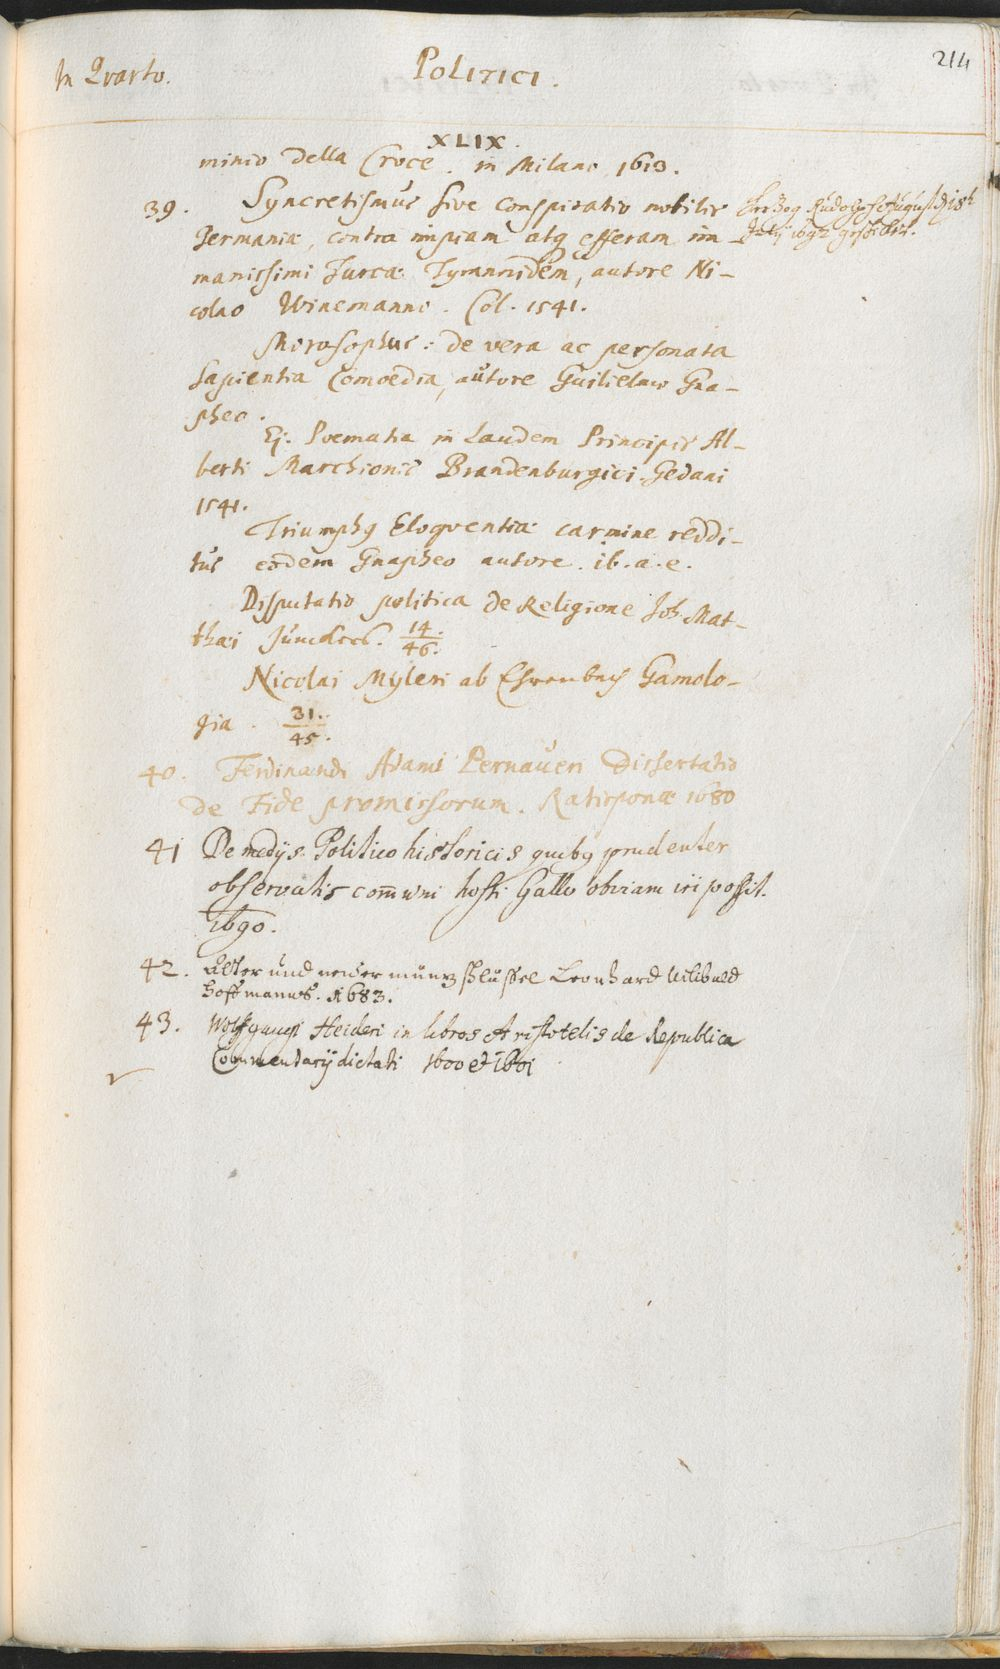 In Qvarto.
Politici.
214
XLIX.
minio della Croce. in Milano 1613.
39. Syncretismus sive conspiratio nobilis
Germaniæ, contra impiam atq efferam im
manissimi Turcæ Tyrannidem, autore Ni-
colao Winemanno. Col. 1541.
Herzog Rudolph August d 18t
July 1692
Morosophus: de vera ac personata
Sapientia Comoedia, autore Guilielmo Gna-
pheo.
Ej. Poematia in Laudem Principis Al-
berti Marchionis Brandenburgici. Gedani
1541.
Triumphq Eloqventiæ carmine reddi-
tus eodem Gnapheo autore. ib. a. e.
Disputatio politica de Religione Joh. Mat-
thæi 14./46.
Nicolai Myleri ab Ehrenbach Gamolo-
gia. 31./45.
40. Ferdinandi Adami Pernaueri Dissertatio
de Fide promissorum. Ratisponæ 1680
41 De medijs Politico historicis quibq prudenter
observatis com̄uni hosti Gallo obviam iri possit.
1690.
42. Alter und newer müntz schlüssel Leonhard Wilibald
Hoffmanns. 1683.
43. Wolfgangi Heideri in libros Aristotelis de Republica
Commentarij dictati 1600 et 1601